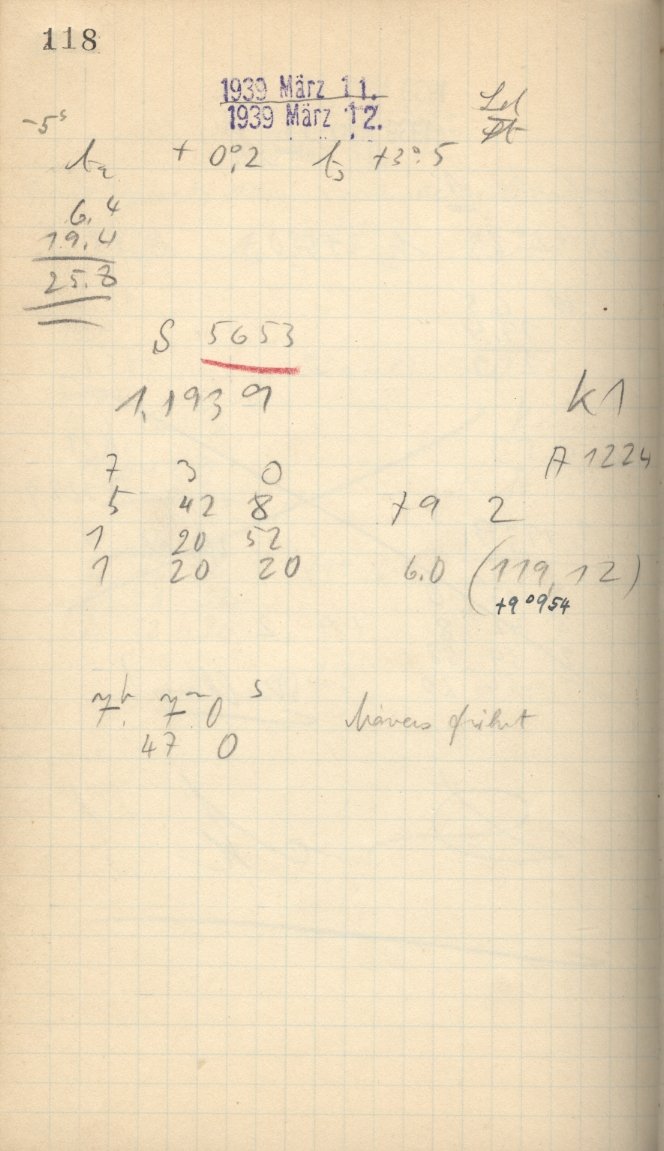 118
1939 März 11.
1939 März 12.
-5ˢ
t₂ + 0°,2 t₃ +3°.5
6.4
19.4
25.8
S 5653
1,1939
K1
A 1224
7 3 0
5 42 8 +9 2
1 20 52
1 20 20 6.0 (119,12)
+9°954
7ʰ 7ᵐ 0ˢ
47 0